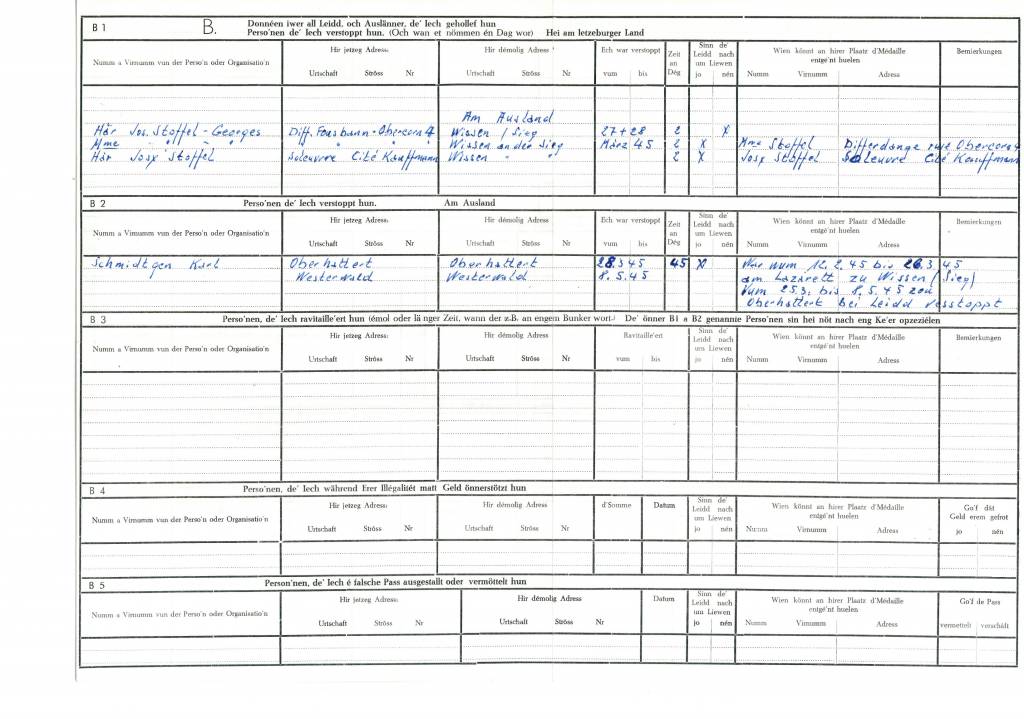 B 1 B. Donnéen iwer all Leidd, och Auslänner, de' Iech gehollef hun
Perso'nen de' Iech verstoppt hun. (Och wan et nömmen én Dag wor) Hei am letzeburger Land
Numm a Virnumm vun der Perso'n oder Organisatio'n
Hir jetzeg Adress:
Urtschaft Ströss Nr
Hir démolig Adress
Urtschaft Ströss Nr
Ech war verstoppt
vum bis
Zeit
an
Dég
Sinn de'
Leidd nach
um Liewen
jo nén
Wien könnt an hirer Plaatz d'Médaille
entgé'nt huelen
Numm Virnumm Adress
Bemierkungen
Am Ausland
Här Jos. Stoffel - Georges Diff. Fousbann - Obercorn 4 Wissen / Sieg 27 + 28 2 x
Mme " " " " " Wissen an der Sieg März 45 2 x Mme Stoffel Differdange rue Obercorn 4
Här Josy Stoffel Soleuvre Cité Kauffmann Wissen " " 2 x Josy Stoffel Soleuvre Cité Kauffmann
B 2 Perso'nen de' Iech verstoppt hun. Am Ausland
Numm a Virnumm vun der Perso'n oder Organisatio'n
Hir jetzeg Adress:
Urtschaft Ströss Nr
Hir démolig Adress
Urtschaft Ströss Nr
Ech war verstoppt
vum bis
Zeit
an
Dég
Sinn de'
Leidd nach
um Liewen
jo nén
Wien könnt an hirer Plaatz d'Médaille
entgé'nt huelen
Numm Virnumm Adress
Bemierkungen
Schmidtgen Karl Oberhattert Oberhattert 28.3 45 45 x War vum 12. 2. 45 bis 26. 3. 45
Westerwald Westerwald 8. 5. 45 am Lazarett zu Wissen (Sieg)
Vum 25.3. bis 8. 5. 45 zou
Oberhattert bei Leidd verstoppt
B 3 Perso'nen, de' Iech ravitaille'ert hun (émol oder lä nger Zeit, wann der z.B. an engem Bunker wort.) De' önner B1 a B2 genannte Perso'nen sin hei nöt nach eng Ke'er opzezielen
Numm a Virnumm vun der Perso'n oder Organisatio'n
Hir jetzeg Adress:
Urtschaft Ströss Nr
Hir démolig Adress
Urtschaft Ströss Nr
Ravitaille'ert
vum bis
Sinn de'
Leidd nach
um Liewen
jo nén
Wien könnt an hirer Plaatz d'Médaille
entgé'nt huelen
Numm Virnumm Adress
Bemierkungen
B 4 Perso'nen, de' Iech während Erer Illégalitét matt Geld önnerstötzt hun
Numm a Virnumm vun der Perso'n oder Organisatio'n
Hir jetzeg Adress:
Urtschaft Ströss Nr
Hir démolig Adress
Urtschaft Ströss Nr
d'Somme
Datum
Sinn de'
Leidd nach
um Liewen
jo nén
Wien könnt an hirer Plaatz d'Médaille
entgé'nt huelen
Numm Virnumm Adress
Go'f dat
Geld erem gefrot
jo nén
B 5 Person'nen, de' Iech é falsche Pass ausgestallt oder vermöttelt hun
Numm a Virnumm vun der Perso'n oder Organisatio'n
Hir jetzeg Adress:
Urtschaft Ströss Nr
Hir démolig Adress
Urtschaft Ströss Nr
Datum
Sinn de'
Leidd nach
um Liewen
jo nén
Wien könnt an hirer Plaatz d'Médaille
entgé'nt huelen
Numm Virnumm Adress
Go'f de Pass
vermettelt verschâft